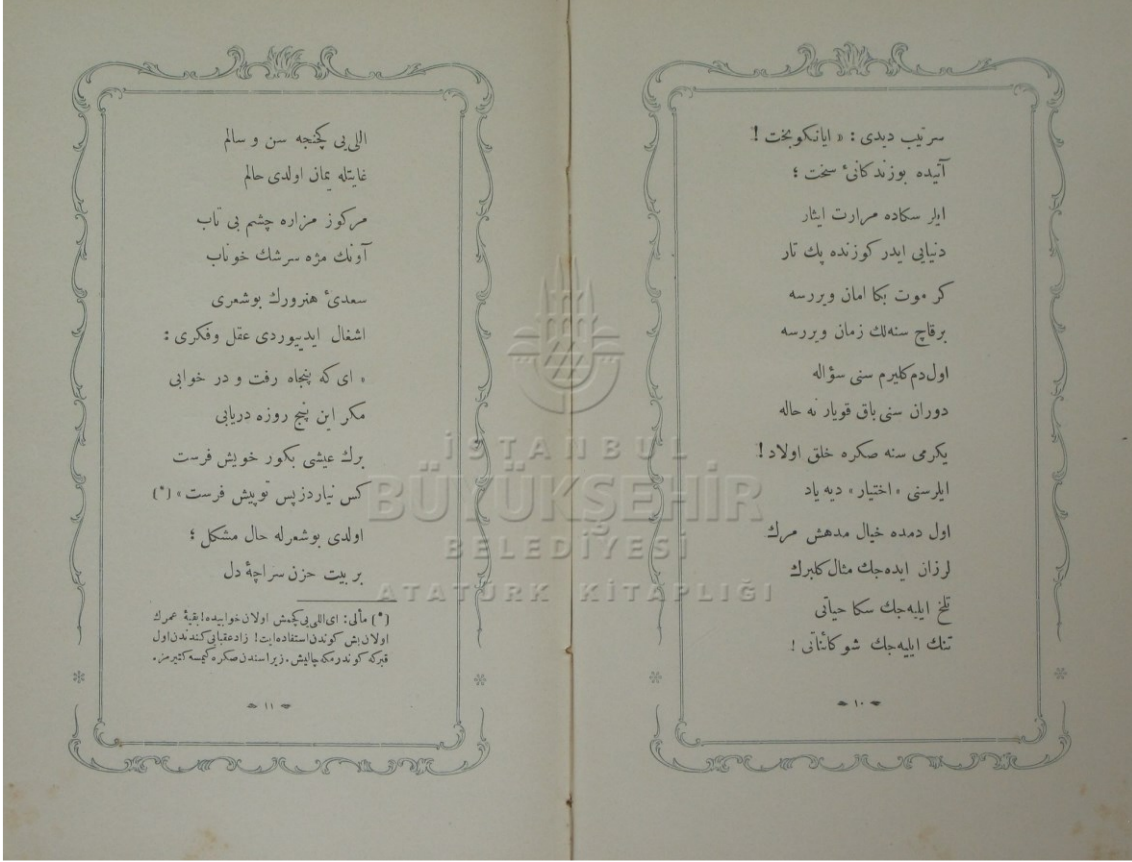 سرتیب دیدی : « ایانیکوبخت !
آتیده بوزندکانیٔ سخت ؛
ایلر سکاده مرارت ایثار
دنیایی ایدر کوزنده پك تار
کر موت بکا امان ویررسه
برقاچ سنه‌لك زمان ویررسه
اول‌دم کلیرم سنی سؤاله
دوران سنی باق قویار نه حاله
یکرمی سنه صکره خلق اولاد !
ایلرسنی « اختیار » دیه یاد
اول دمده خیال مدهش مرك
لرزان ایده‌جك مثال کلبرك
تلخ ایلیه‌جك سکا حیاتی
تنك ایلیه‌جك شو کائناتی !
— ١٠ —
اللی‌یی کچنجه سن و سالم
غایتله یمان اولدی حالم
مرکوز مزاره چشم بی تاب
آونك مژه سرشك خوناب
سعدیٔ هنرورك بوشعری
اشغال ایدییوردی عقل وفکری :
« ای که پنجاه رفت و در خوابی
مکر این پنج روزه دریابی
برك عیشی بکور خویش فرست
کس نیاردزپس توپیش فرست » (*)
اولدی بوشعرله حال مشکل ؛
بر بیت حزن سراچهٔ دل
(*) مآلی : ای‌اللی‌یی کچمش اولان خوابیده! بقیهٔ عمرك
اولان‌بش کوندن‌استفاده‌ایت! زادعقبایی کندکدن‌اول
قبرکه کوندرمکه‌چالیش . زیراسندن صکره کیمسه کتیرمز .
— ١١ —
İSTANBUL
BÜYÜKŞEHİR
BELEDİYESİ
ATATÜRK KİTAPLIĞI